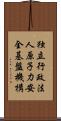 独立行政法
人原子力安
全基盤機構